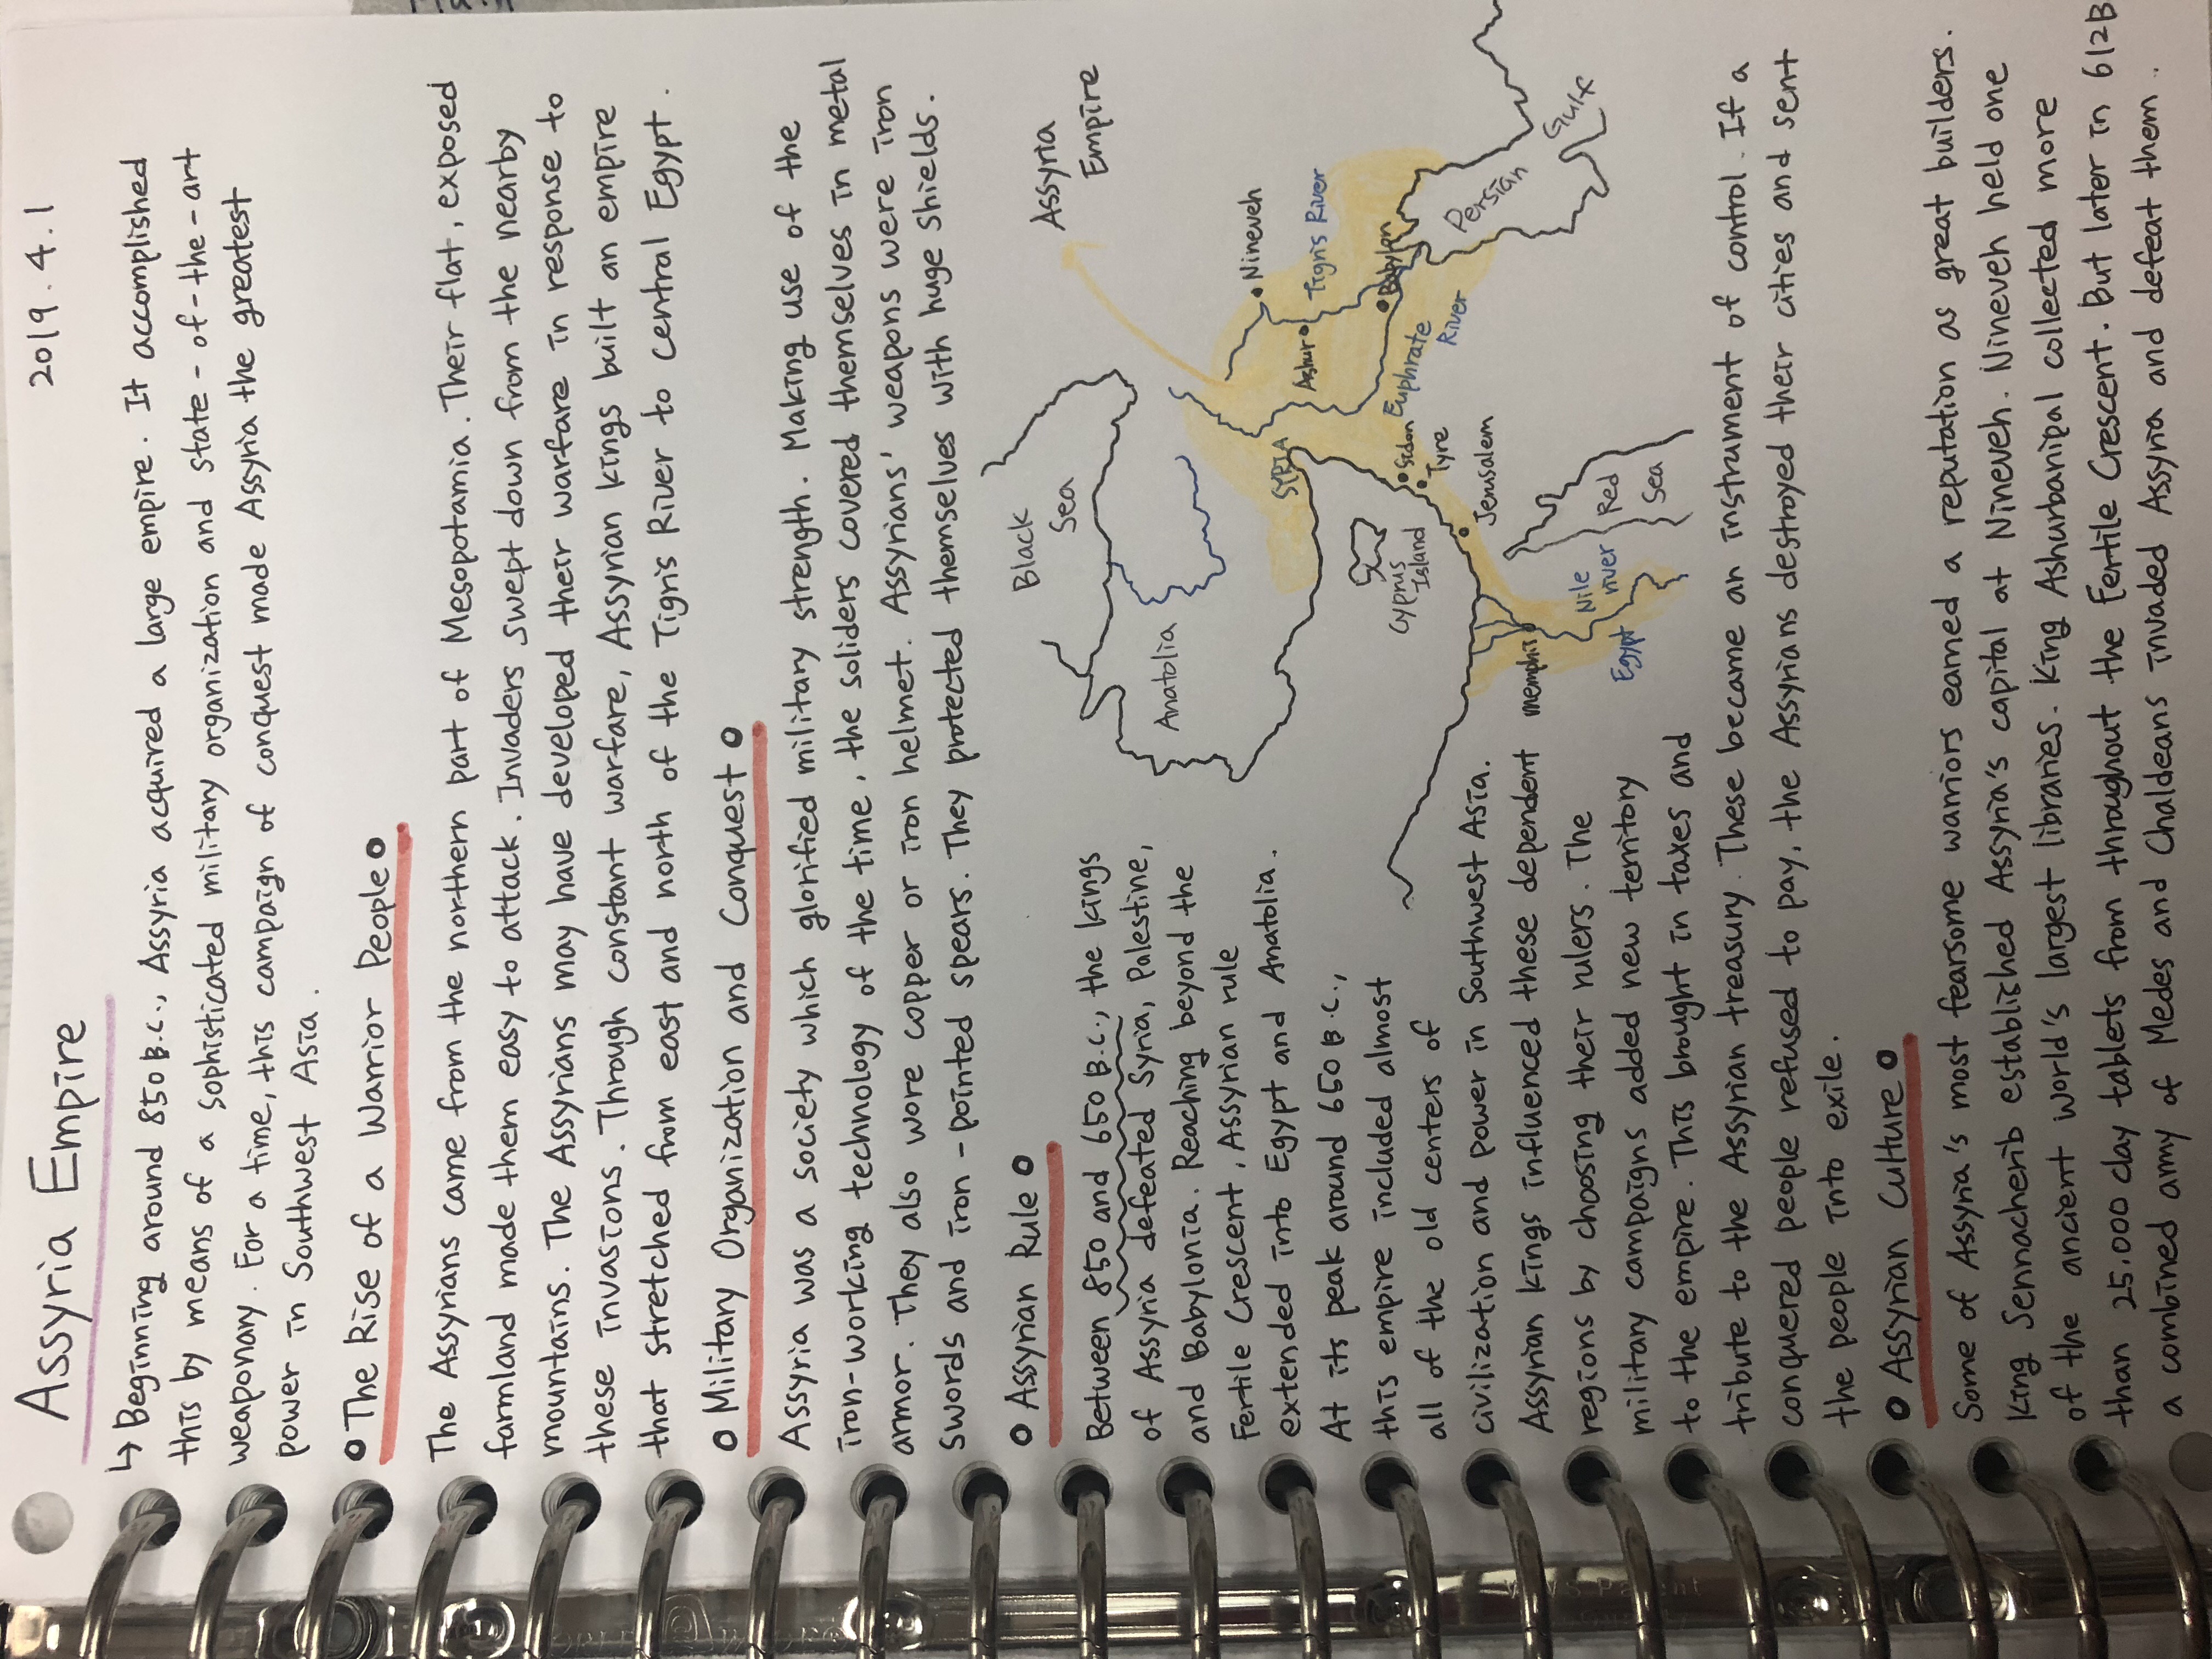 2019.4.1
Assyria Empire
↳ Beginning around 850 B.C., Assyria acquired a large empire. It accomplished
this by means of a sophisticated military organization and state-of-the-art
weaponary. For a time, this campaign of conquest made Assyria the greatest
power in Southwest Asia.
The Rise of a Warrior People
The Assyrians came from the northern part of Mesopotamia. Their flat, exposed
farmland made them easy to attack. Invaders swept down from the nearby
mountains. The Assyrians may have developed their warfare in response to
these invasions. Through constant warfare, Assyrian kings built an empire
that stretched from east and north of the Tigris River to central Egypt.
Military Organization and Conquest
Assyria was a society which glorified military strength. Making use of the
iron-working technology of the time, the soliders covered themselves in metal
armor. They also wore copper or iron helmet. Assyrians' weapons were iron
swords and iron-pointed spears. They protected themselves with huge shields.
Assyrian Rule
Between 850 and 650 B.C., the kings
of Assyria defeated Syria, Palestine,
and Babylonia. Reaching beyond the
Fertile Crescent, Assyrian rule
extended into Egypt and Anatolia.
At its peak around 650 B.C.,
this empire included almost
all of the old centers of
civilization and power in Southwest Asia.
Assyrian kings influenced these dependent
regions by choosing their rulers. The
military campaigns added new territory
to the empire. This brought in taxes and
tribute to the Assyrian treasury. These became an instrument of control. If a
conquered people refused to pay, the Assyrians destroyed their cities and sent
the people into exile.
Assyria Empire
Black Sea
Anatolia
Nineveh
Tigris River
Ashur
Babylon
Euphrate River
Persian Gulf
SYRIA
Sidon
Tyre
Jerusalem
Cyprus Island
Red Sea
Nile river
memphis
Egypt
Assyrian Culture
Some of Assyria's most fearsome warriors earned a reputation as great builders.
King Sennacherib established Assyria's capital at Nineveh. Nineveh held one
of the ancient world's largest libraries. King Ashurbanipal collected more
than 25,000 clay tablets from throughout the Fertile Crescent. But later in 612B
a combined army of Medes and Chaldeans invaded Assyria and defeat them.